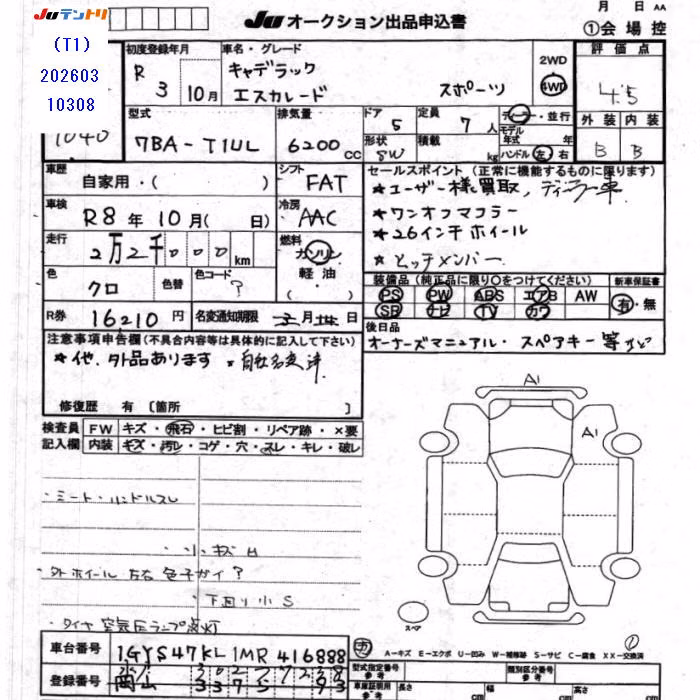 JUテントリ
(T1)
202603
10308
JU オークション出品申込書
月 日 AA
①会場控
初度登録年月
R 3 年 10月
車名・グレード
キャデラック
エスカレード スポーツ
2WD
4WD
評価点
4.5
1040
型式
7BA-T1UL
排気量
6200 CC
ドア
5
定員
7 人
形状
SW
積載
kg
ディーラー・並行
モデル年式 年
ハンドル 左 右
外装 内装
B B
車歴
自家用・( )
シフト
FAT
車検
R8 年 10 月( 日)
冷房
AAC
走行
2万2千000 km
燃料
ガソリン
軽油
( )
色
クロ
色替
色コード
?
R券
16,210 円
名変通知期限 月 日
セールスポイント(正常に機能するものに限ります)
★ユーザー様買取,ディーラー車
★ワンオフマフラー
★26インチホイール
★ヒッチメンバー
装備品(純正品に限り〇をつけてください)
新車保証書
PS PW ABS エアB AW
SR ナビ TV カワ
有・無
後日品
オーナーズマニュアル・スペアキー等など
注意事項申告欄(不具合内容等は具体的に記入して下さい)
★他、外品あります ★自社名変済
修復歴 有 [箇所 ]
検査員記入欄
FW キズ・飛石・ヒビ割・リペア跡・×要
内装 キズ・汚レ・コゲ・穴・スレ・キレ・破レ
・シート・ハンドルスレ
・小キズ
・外ホイール 左右 色チガイ?
下回り小S
・タイヤ空気圧ランプ点灯
A1
A1
スペア
A-キズ E-エクボ U-凹み W-補修跡 S-サビ C-腐食 XX-交換済
車台番号
1GYS47KL1MR416888
登録番号
岡山
型式指定番号
参考
類別区分番号
参考
車庫証明用
参考
長さ cm
幅 cm
高さ cm